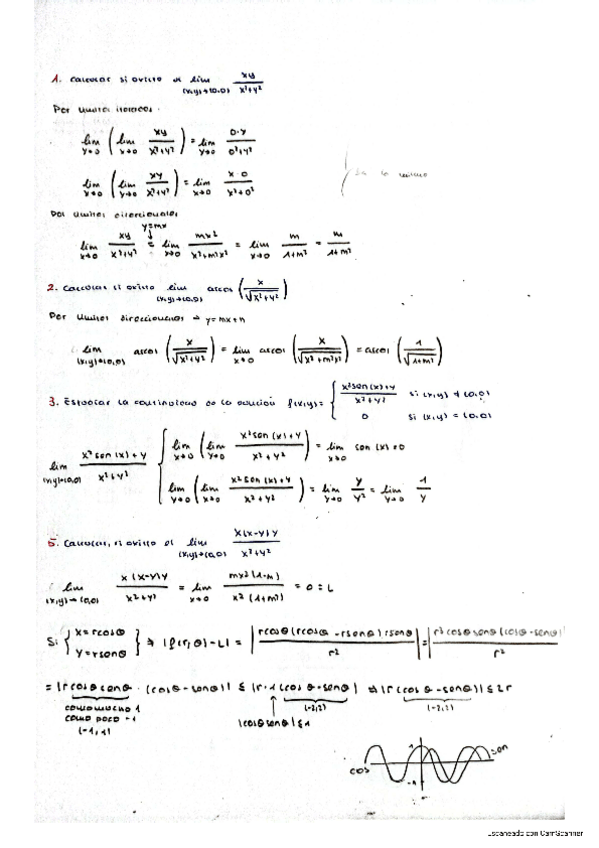 1. Calcular si existe el lim (x,y)→(0,0) xy/(x²+y²)
Por límites iterados
lim y→0 ( lim x→0 xy/(x²+y²) ) = lim y→0 0·y/(0²+y²)
lim x→0 ( lim y→0 xy/(x²+y²) ) = lim x→0 x·0/(x²+0²)
Por límites direccionales
y=mx
lim x→0 xy/(x²+y²) = lim x→0 mx²/(x²+m²x²) = lim x→0 m/(1+m²) = m/(1+m²)
2. Calcular si existe lim (x,y)→(0,0) arcos (x/√(x²+y²))
Por límites direccionales → y=mx+n
lim (x,y)→(0,0) arcos (x/√(x²+y²)) = lim x→0 arcos (x/√(x²+m²x²)) = arcos (1/√(1+m²))
3. Estudiar la continuidad de la función f(x,y) = { (x²sen(x)+y)/(x²+y²) si (x,y) ≠ (0,0)
0 si (x,y) = (0,0)
lim (x,y)→(0,0) (x²sen(x)+y)/(x²+y²) { lim x→0 ( lim y→0 (x²sen(x)+y)/(x²+y²) ) = lim x→0 sen(x) = 0
lim y→0 ( lim x→0 (x²sen(x)+y)/(x²+y²) ) = lim y→0 y/y² = lim y→0 1/y
5. Calcular, si existe el lim (x,y)→(0,0) x(x-y)y/(x²+y²)
lim (x,y)→(0,0) x(x-y)y/(x²+y²) = lim x→0 mx³(1-m)/(x²(1+m²)) = 0 = L
Si { x=rcosθ y=rsenθ } ⇒ |f(r,θ)-L| = |rcosθ(rcosθ-rsenθ)rsenθ / r²| = |r³cosθsenθ(cosθ-senθ) / r²|
= |rcosθsenθ·(cosθ-senθ)| ≤ |r·1(cosθ-senθ)| ⇒ |r(cosθ-senθ)| ≤ 2r
como mucho 1
como poco -1
(-1,1)
(-2,2)
(-2,2)
|cosθsenθ| ≤ 1
cos
sen
1
-1
Escaneado con CamScanner